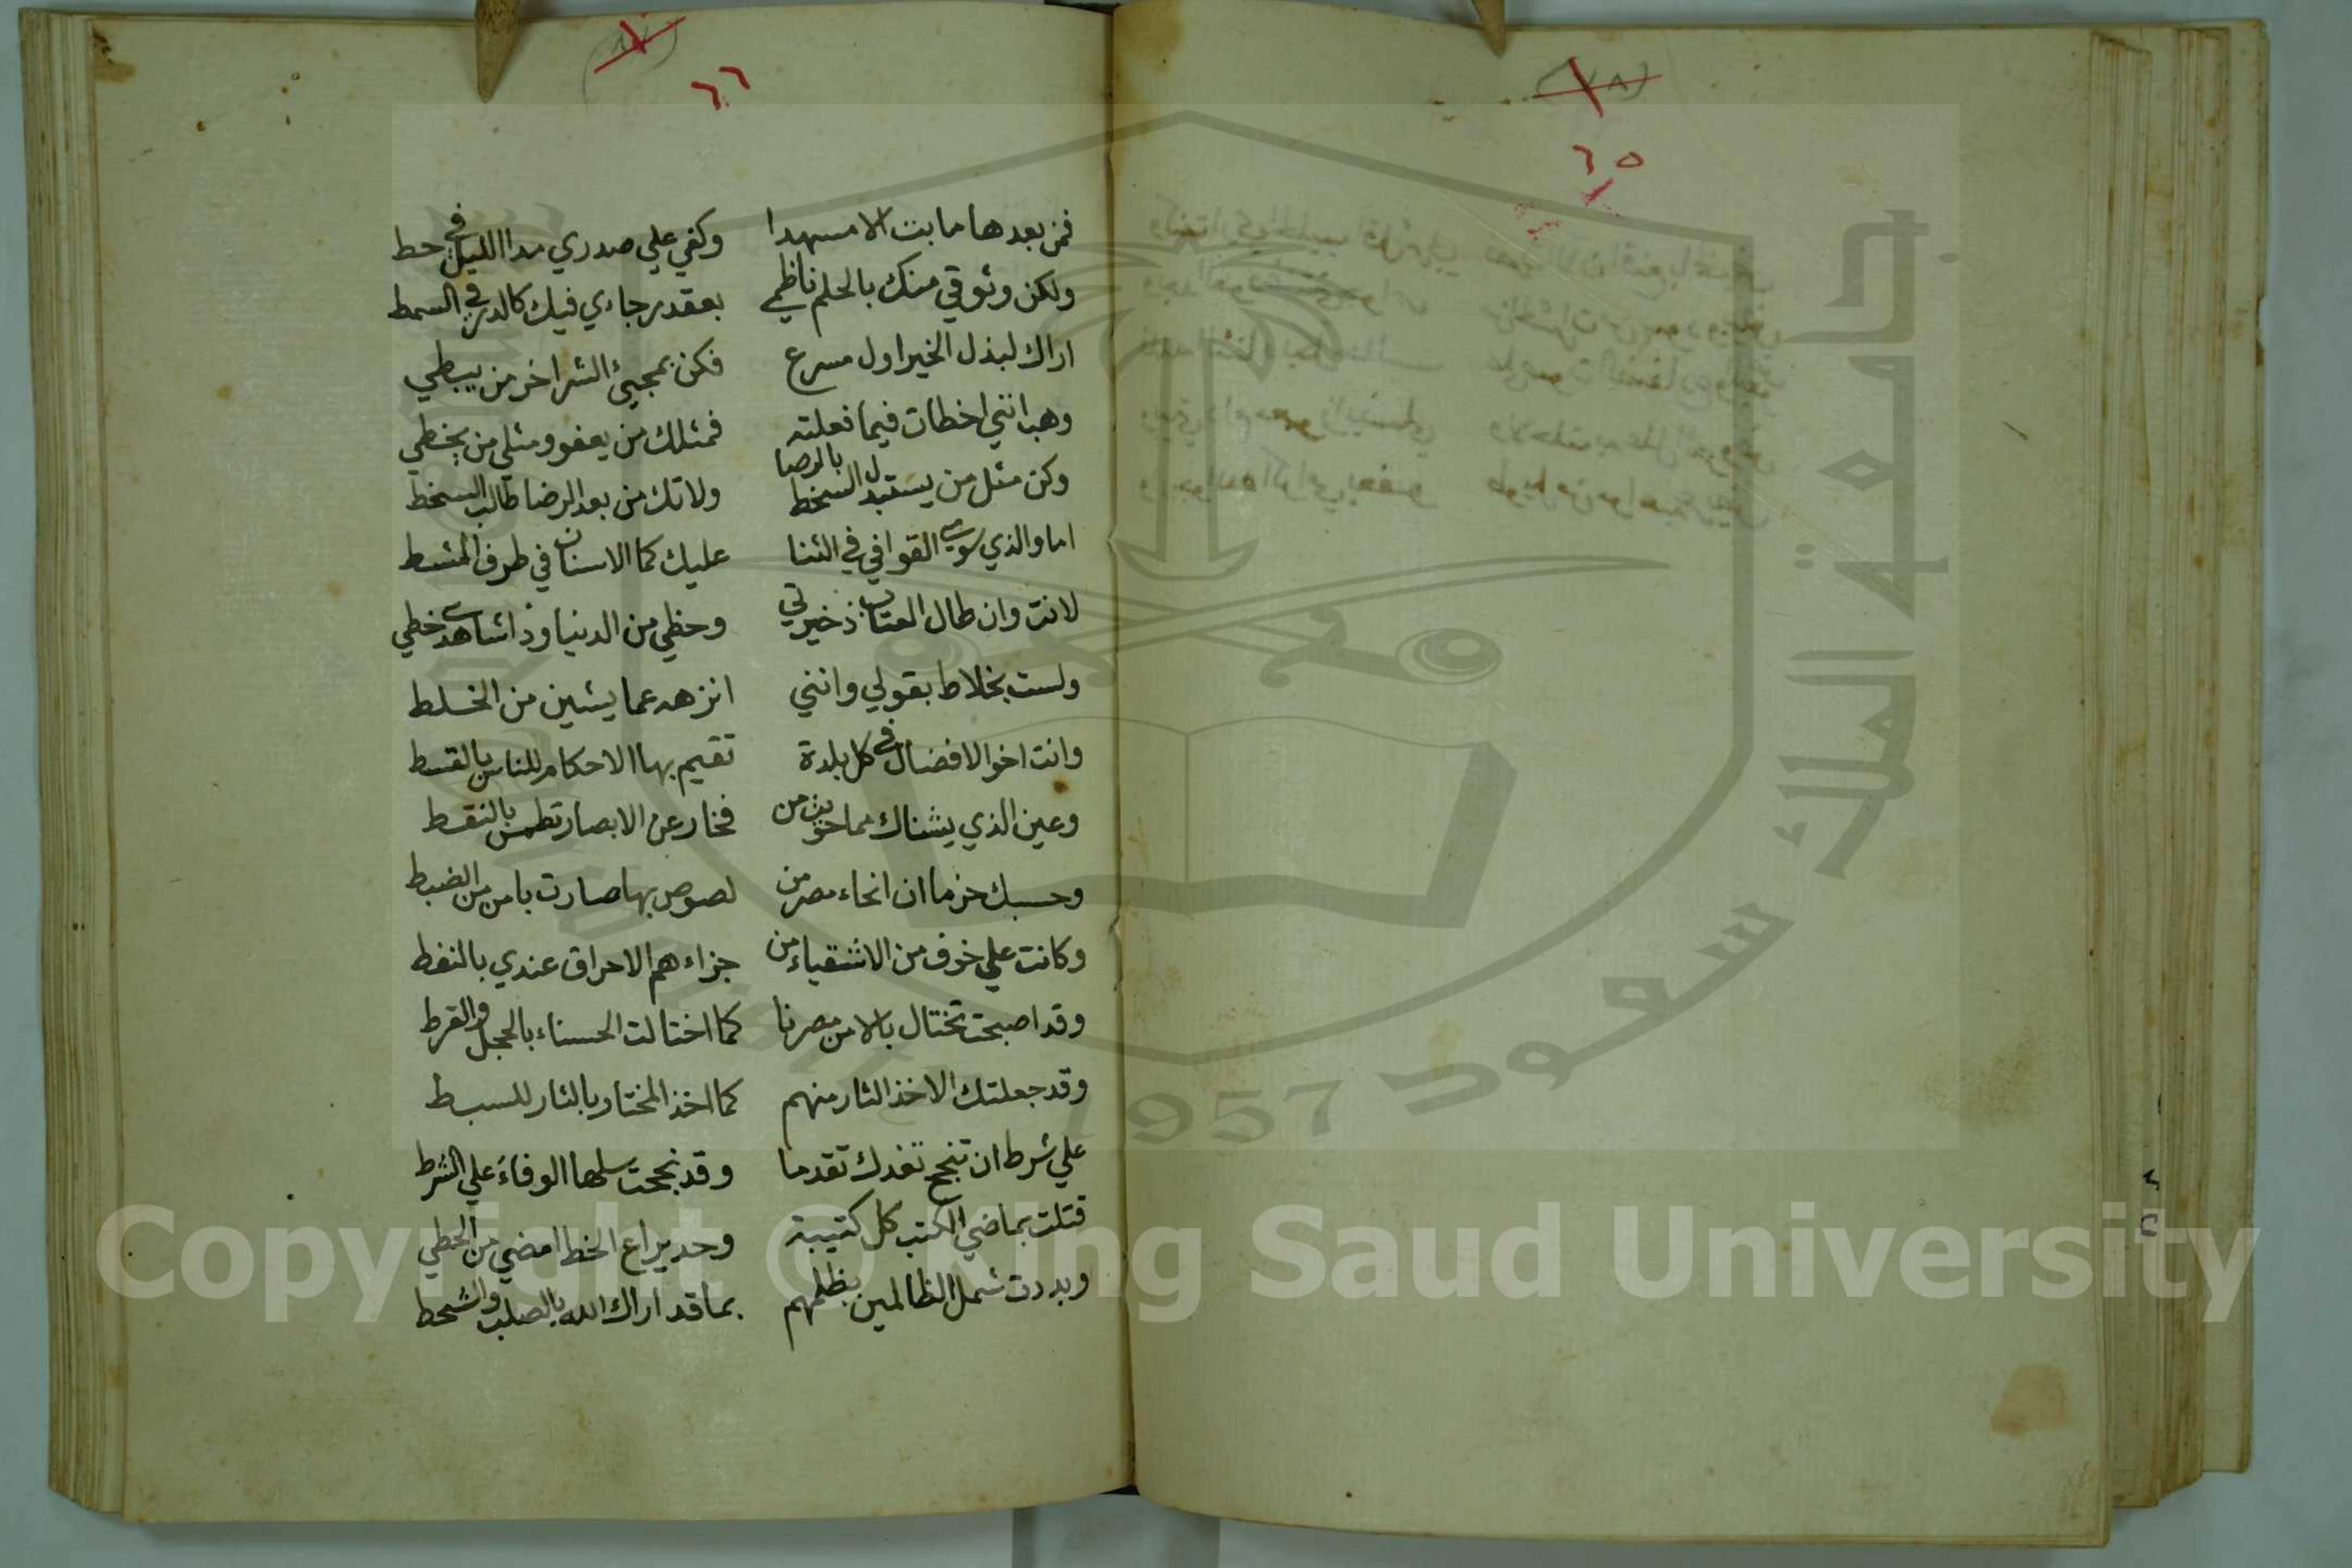 ٦٥
٦٦
فمن بعدها ما بت الا مسهدا وكفي علي صدري مدا الليل في حط
ولكن وثوقي منك بالحلم ناظمي بعقد رجاءي فيك كالدر في السمط
اراك لبذل الخير اول مسرع فكن بمجيئ الشر اخر من يبطي
وهب انني اخطات فيما فعلته فمثلك من يعفو ومثلي من يخطي
وكن مثل من يستبدل السخط بالرضا ولا تك من بعد الرضا طالب السخط
اما والذي سوى القوافي في الثنا عليك كما الاسنان في طرف المشط
لانت وان طال العتاب ذخيرتي وحظي من الدنيا وذا شاهدي خطي
ولست بخلاط بقولي وانني انزهه عما يشين من الخلط
وانت اخو الافضال في كل بلدة تقيم بها الاحكام للناس بالقسط
وعين الذي يشناك مما حويت من فخار عن الابصار تطمس بالنقط
وحسبك حزما ان انحاء مصر من لصوص بها صارت بامن من الضبط
وكانت علي خوف من الاشقياء من جزاءهم الاحراق عندي بالنفط
وقد اصبحت تختال بالامن مصرنا كما اختالت الحسناء بالحجل والقرط
وقد جعلتك الاخذ الثار منهم كما اخذ المختار بالثار للسبط
علي شرط ان تنجح تفدك تقدما وقد نجحت سلها الوفاء علي الشرط
قتلت بماضي الكتب كل كتيبة وحد يراع الخط امضي من الخطي
وبددت شمل الظالمين بظلمهم بما قد اراك الله بالصلب والشحط
جامعة الملك سعود
1957
Copyright © King Saud University